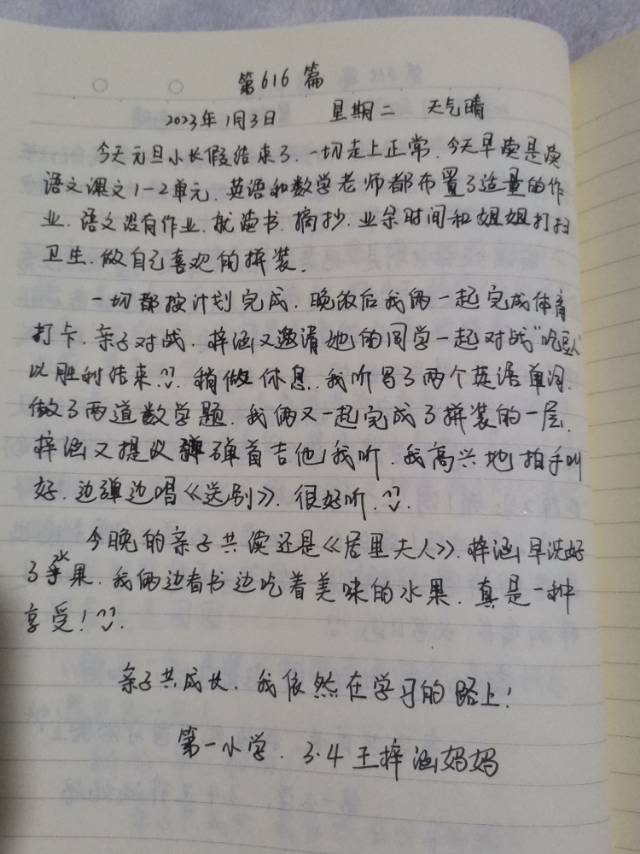 第616篇
2023年1月3日 星期二 天气晴
今天元旦小长假结束了.一切走上正常.今天早读是读
语文课文1-2单元.英语和数学老师都布置了适量的作
业.语文没有作业.就读书.摘抄.业余时间和姐姐打扫
卫生.做自己喜欢的拼装.
一切都按计划完成.晚饭后我俩一起完成体育
打卡.亲子对战.梓涵又邀请她的同学一起对战“吃豆人”
以胜利结束.稍做休息.我听写了两个英语单词.
做了两道数学题.我俩又一起完成了拼装的一层.
梓涵又提议弹弹首吉他我听.我高兴地拍手叫
好.边弹边唱《送别》.很好听.
今晚的亲子共读还是《居里夫人》.梓涵早洗好
了水果.我俩边看书边吃着美味的水果.真是一种
享受!
亲子共成长.我依然在学习的路上!
第一小学.3.4王梓涵妈妈